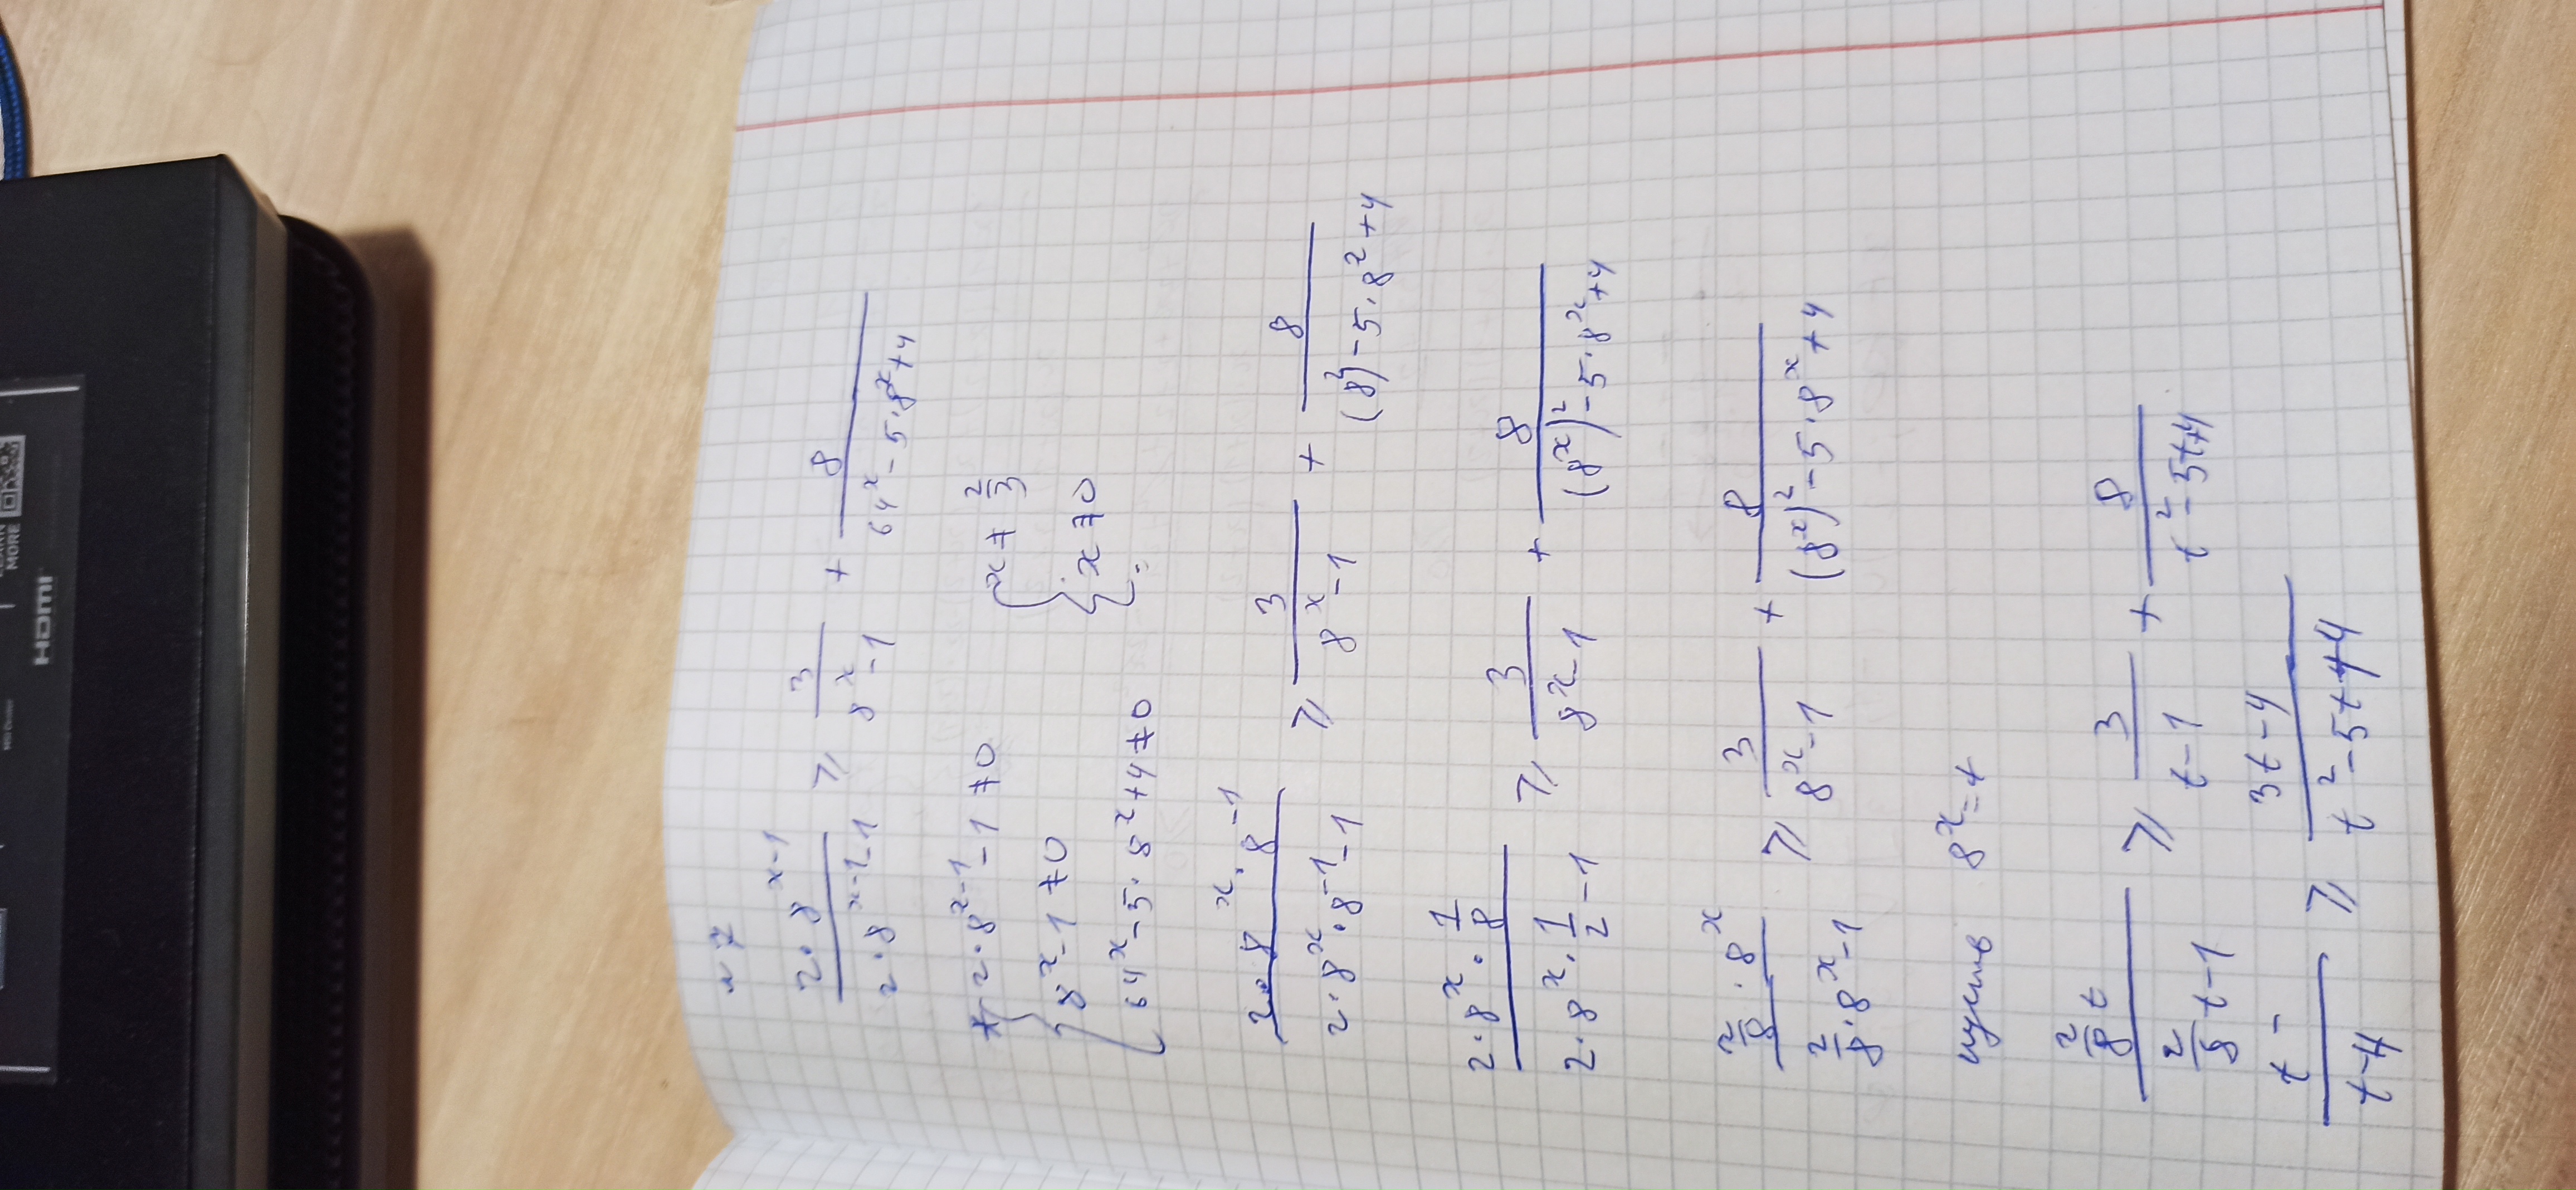 LEARN
MORE
HDMI
№ 7
2·8^(x-1) / (2·8^(x-1) - 1) ⩾ 3 / (8^x - 1) + 8 / (64^x - 5·8^x + 4)
{ 2·8^(x-1) - 1 ≠ 0 { x ≠ 2/3
8^x - 1 ≠ 0 x ≠ 0
64^x - 5·8^x + 4 ≠ 0
2·8^x·8^(-1) / (2·8^x·8^(-1) - 1) ⩾ 3 / (8^x - 1) + 8 / ((8)^2 - 5·8^2 + 4)
2·8^x·1/8 / (2·8^x·1/2 - 1) ⩾ 3 / (8^x - 1) + 8 / ((8^x)^2 - 5·8^x + 4)
2/8·8^x / (2/8·8^x - 1) ⩾ 3 / (8^x - 1) + 8 / ((8^x)^2 - 5·8^x + 4)
пусть 8^x = t
2/8 t / (2/8 t - 1) ⩾ 3 / (t - 1) + 8 / (t^2 - 5t + 4)
t - / (t - 4) ⩾ (3t - 4) / (t^2 - 5t + 4)